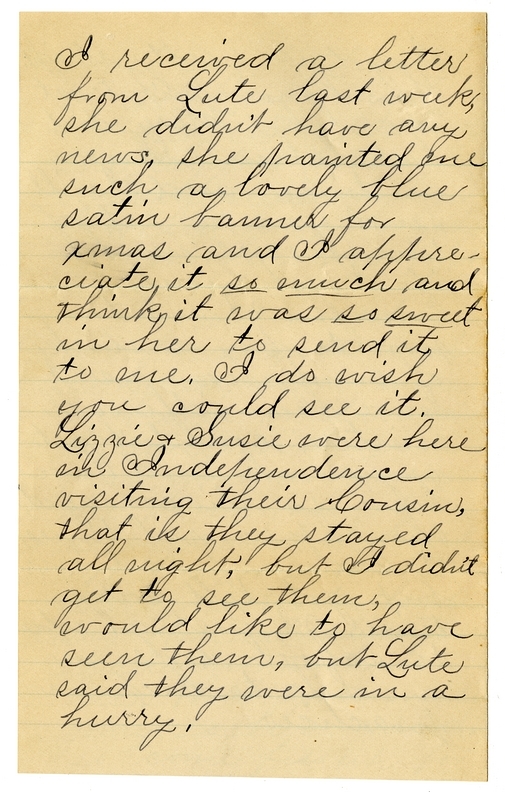 I received a letter
from Lute last week,
she didn't have any
news, she painted me
such a lovely blue
satin banner for
xmas and I appre-
ciate it so much and
think it was so sweet
in her to send it
to me. I do wish
you could see it.
Lizzie & Susie were here
in Independence
visiting their Cousin,
that is they stayed
all night, but I didn't
get to see them,
would like to have
seen them, but Lute
said they were in a
hurry.